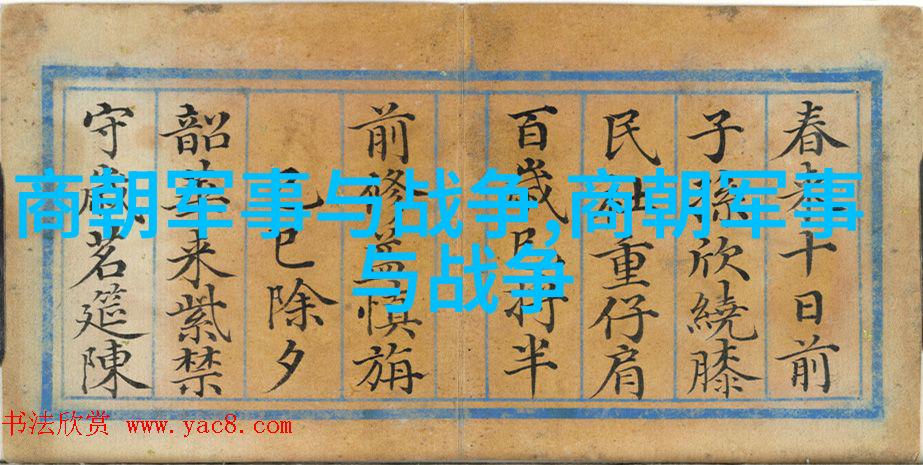 春來十日前
子孫欣繞膝
民社重仔肩
百歲 半
前修益慎旃
己巳除夕
韶華来紫禁
守歲茗筵陳
商朝军事与战争,商朝军事
与战争
书法欣赏 www.yac8.com